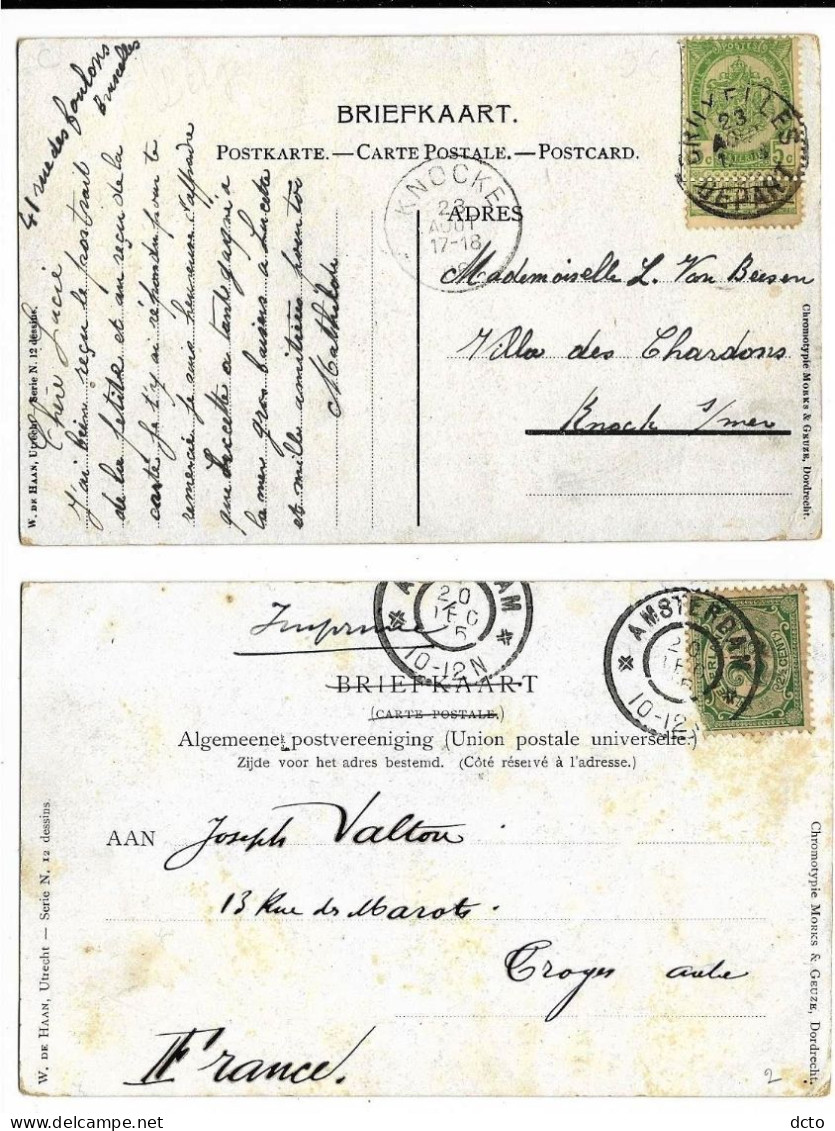 BRIEFKAART.
POSTKARTE.—CARTE POSTALE.—POSTCARD.
ADRES
Mademoiselle L. Van Beesen
Villa des Chardons
Knock s/mer
41 rue des foulons
Bruxelles
Chère Lucie
J'ai bien reçu le portrait
de la petite et ai reçu de la
carte je t'y ai répondu pour te
remercie je suis heureuse d'apprendre
que Lucette a tant gagné a
la mer gros baisers a Lucette
et mille amitiées pour toi
Mathilde
W. DE HAAN, Utrecht — Serie N. 12 dessins.
Chromotypie MORKS & GEUZE, Dordrecht.
KNOCKE
23
AOUT
17-18
BRUXELLES
23
DEPART
POSTES
5c
Imprimé
AMSTERDAM
20
DEC
5
10-12 N
AMSTERDAM
20
DEC
5
10-12
BRIEFKAART
(CARTE POSTALE.)
Algemeene postvereeniging (Union postale universelle.)
Zijde voor het adres bestemd. (Côté réservé à l'adresse.)
AAN Joseph Valton
13 Rue des Marots.
Troyes aube
France.
W. DE HAAN, Utrecht — Serie N. 12 dessins.
Chromotypie MORKS & GEUZE, Dordrecht.
2
dcto